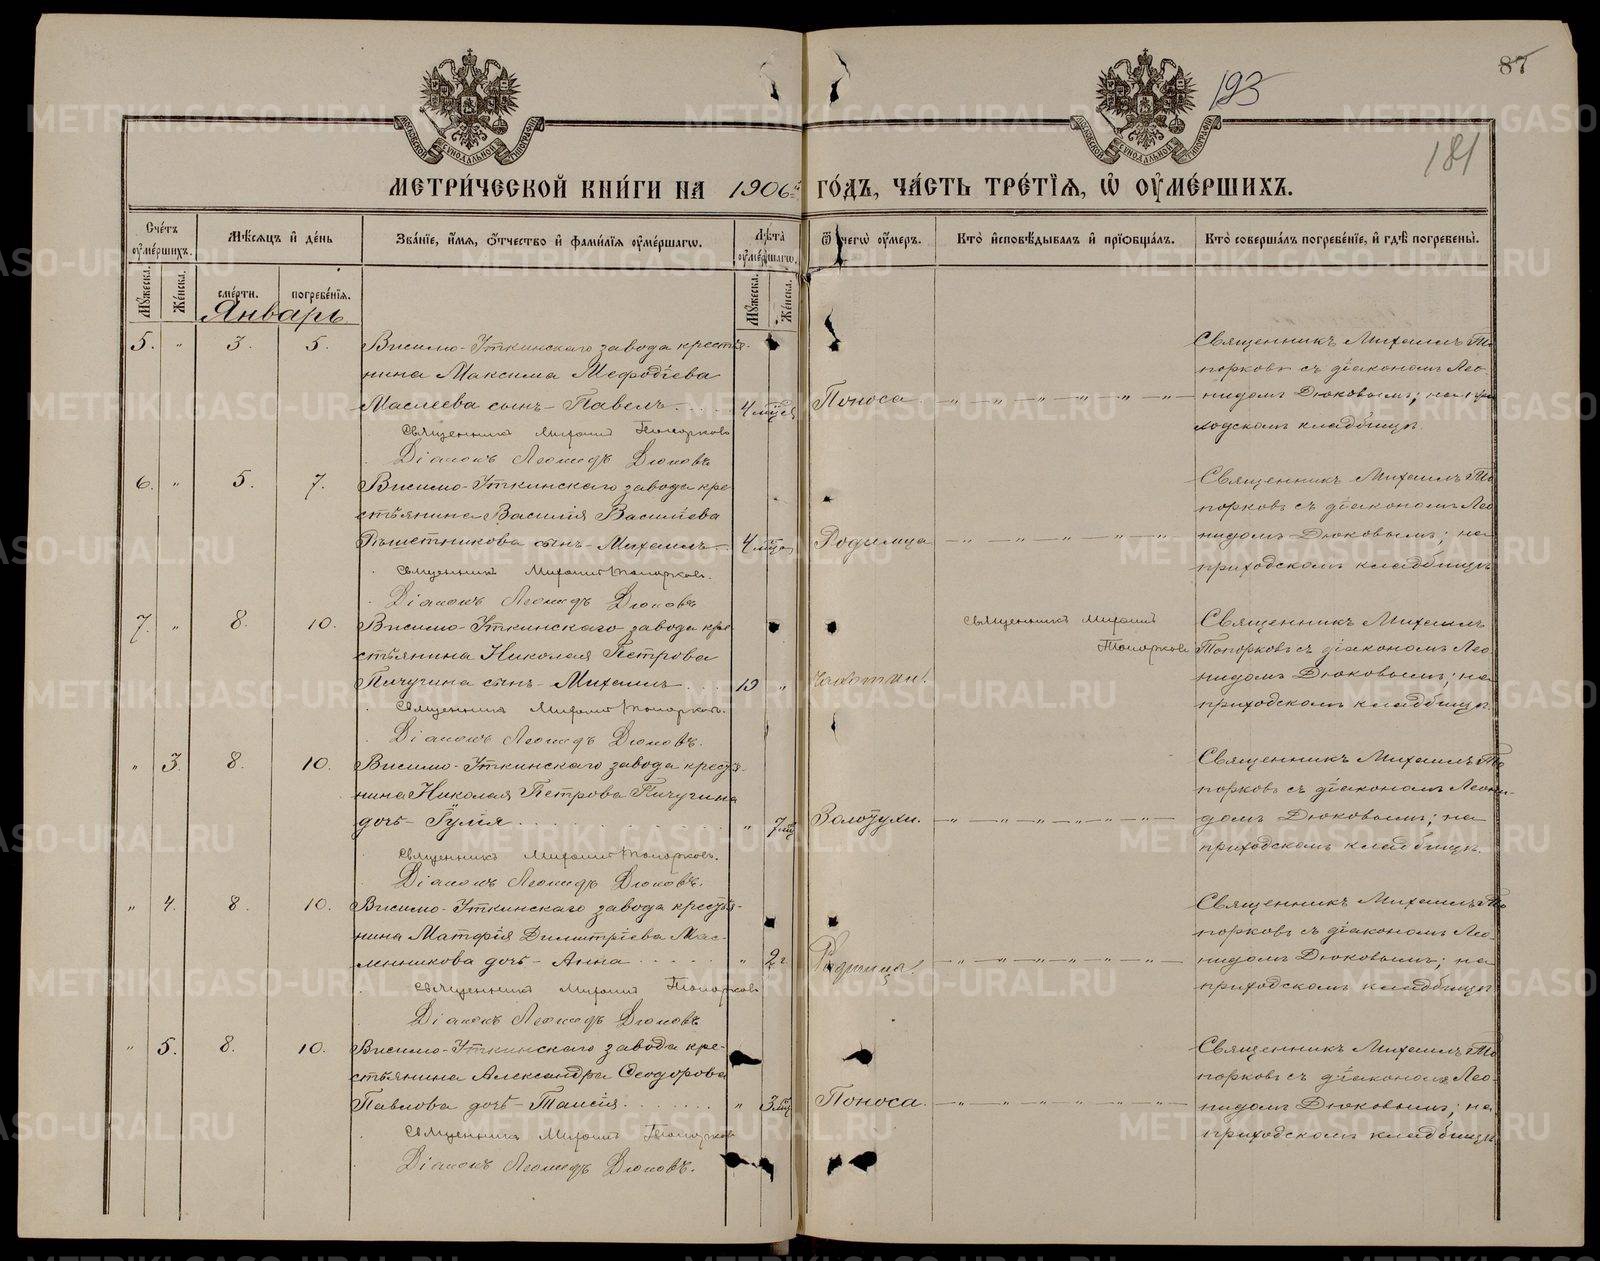 193
87
181
МЕТРИ́ЧЕСКОЙ КНИ́ГИ НА 1906 ГО́ДЪ, ЧА́СТЬ ТРЕ́ТЇѦ, Ѡ҆ ОУ҆МЕ́РШИХЪ.
Сче́тъ оу҆ме́ршихъ.
Мѣ́сѧцъ и҆ де́нь
Зва́нїе, и҆́мѧ, ѻ҆́тчество и҆ фами́лїѧ оу҆ме́ршагѡ.
Лѣ́та оу҆ме́ршагѡ.
Ѿ чегѡ̀ оу҆́меръ.
Кто̀ и҆сповѣ́дывалъ и҆ прїѻбща́лъ.
Кто̀ соверша́лъ погребе́нїе, и҆ гдѣ̀ погребены̀.
Мꙋ́жеска.
Же́нска.
сме́рти.
погребе́нїѧ.
Мꙋ́жеска.
Же́нска.
Январь
5. " 3. 5. Висимо-Уткинскаго завода крестья-
нина Максима Меѳодіева
Маслеева сынъ - Павелъ . . . . 4 мѣся Поноса
Священникъ Михаилъ Топорковъ
Діаконъ Леонидъ Дюковъ
Священникъ Михаилъ То
порковъ съ діакономъ Лео
нидомъ Дюковымъ; на при
ходскомъ кладбищѣ.
6. " 5. 7. Висимо-Уткинскаго завода кре
стьянина Василія Васильева
сынъ - Михаилъ 4 мѣся Родимца
Священникъ Михаилъ Топорковъ.
Діаконъ Леонидъ Дюковъ
Священникъ Михаилъ То
порковъ съ діакономъ Лео
нидомъ Дюковымъ; на
приходскомъ кладбищѣ
7. " 8. 10. Висимо-Уткинскаго завода кре
стьянина Николая Петрова
Пичугина сынъ - Михаилъ . . . . "
Священникъ Михаилъ Топорковъ.
Діаконъ Леонидъ Дюковъ.
Священникъ Михаилъ
Топорковъ
Священникъ Михаилъ
Топорковъ съ діакономъ Лео
нидомъ Дюковымъ; на
приходскомъ кладбищѣ.
" 3. 8. 10. Висимо-Уткинскаго завода крестья-
нина Николая Петрова Пичугина
дочь - Іулія . . . . . " 7 мѣ Золотухи.
Священникъ Михаилъ Топорковъ.
Діаконъ Леонидъ Дюковъ.
Священникъ Михаилъ То
порковъ съ діакономъ Леони-
домъ Дюковымъ; на
приходскомъ кладбищѣ.
" 4. 8. 10. Висимо-Уткинскаго завода крестья-
нина Матфія Димитріева Мас-
ленникова дочь - Анна . . . . . " 2 г. Родимца.
Священникъ Михаилъ Топорковъ
Діаконъ Леонидъ Дюковъ
Священникъ Михаилъ То
порковъ съ діакономъ Лео-
нидомъ Дюковымъ; на
приходскомъ кладбищѣ.
" 5. 8. 10. Висимо-Уткинскаго завода кре-
стьянина Александра Ѳеодорова
Павлова дочь - Таисія . . . . . " 3 мѣ Поноса.
Священникъ Михаилъ Топорковъ
Діаконъ Леонидъ Дюковъ.
Священникъ Михаилъ То
порковъ съ діакономъ Лео-
нидомъ Дюковымъ; на
приходскомъ кладбищѣ
METRIKI.GASO-URAL.RU